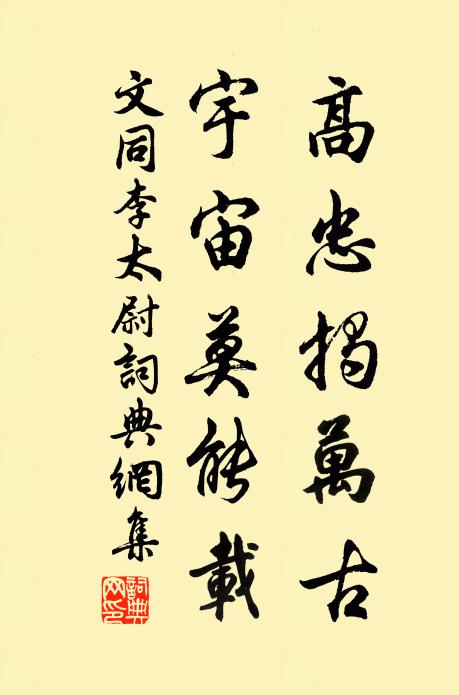 高忠揭萬古
宇宙莫能載
文同李太尉詞典網集
詞典網印